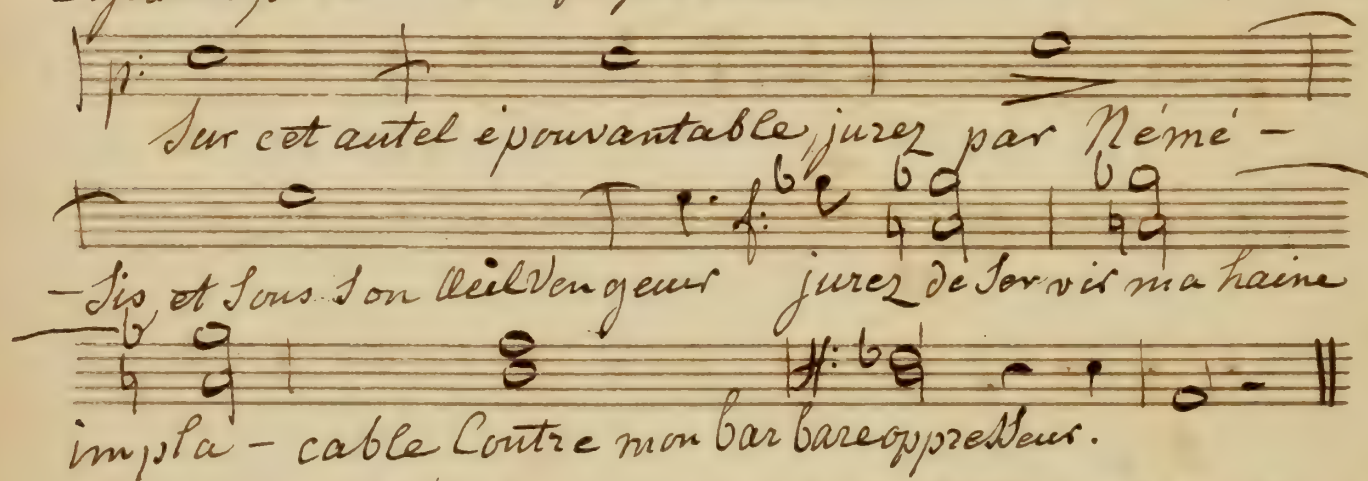 p:
Sur cet autel épouvantable, jurez par Némé -
f:
- Sis, et Sous Son Œil Vengeur jurez de Servir ma haine
ff:
impla - cable Contre mon barbare oppresseur.